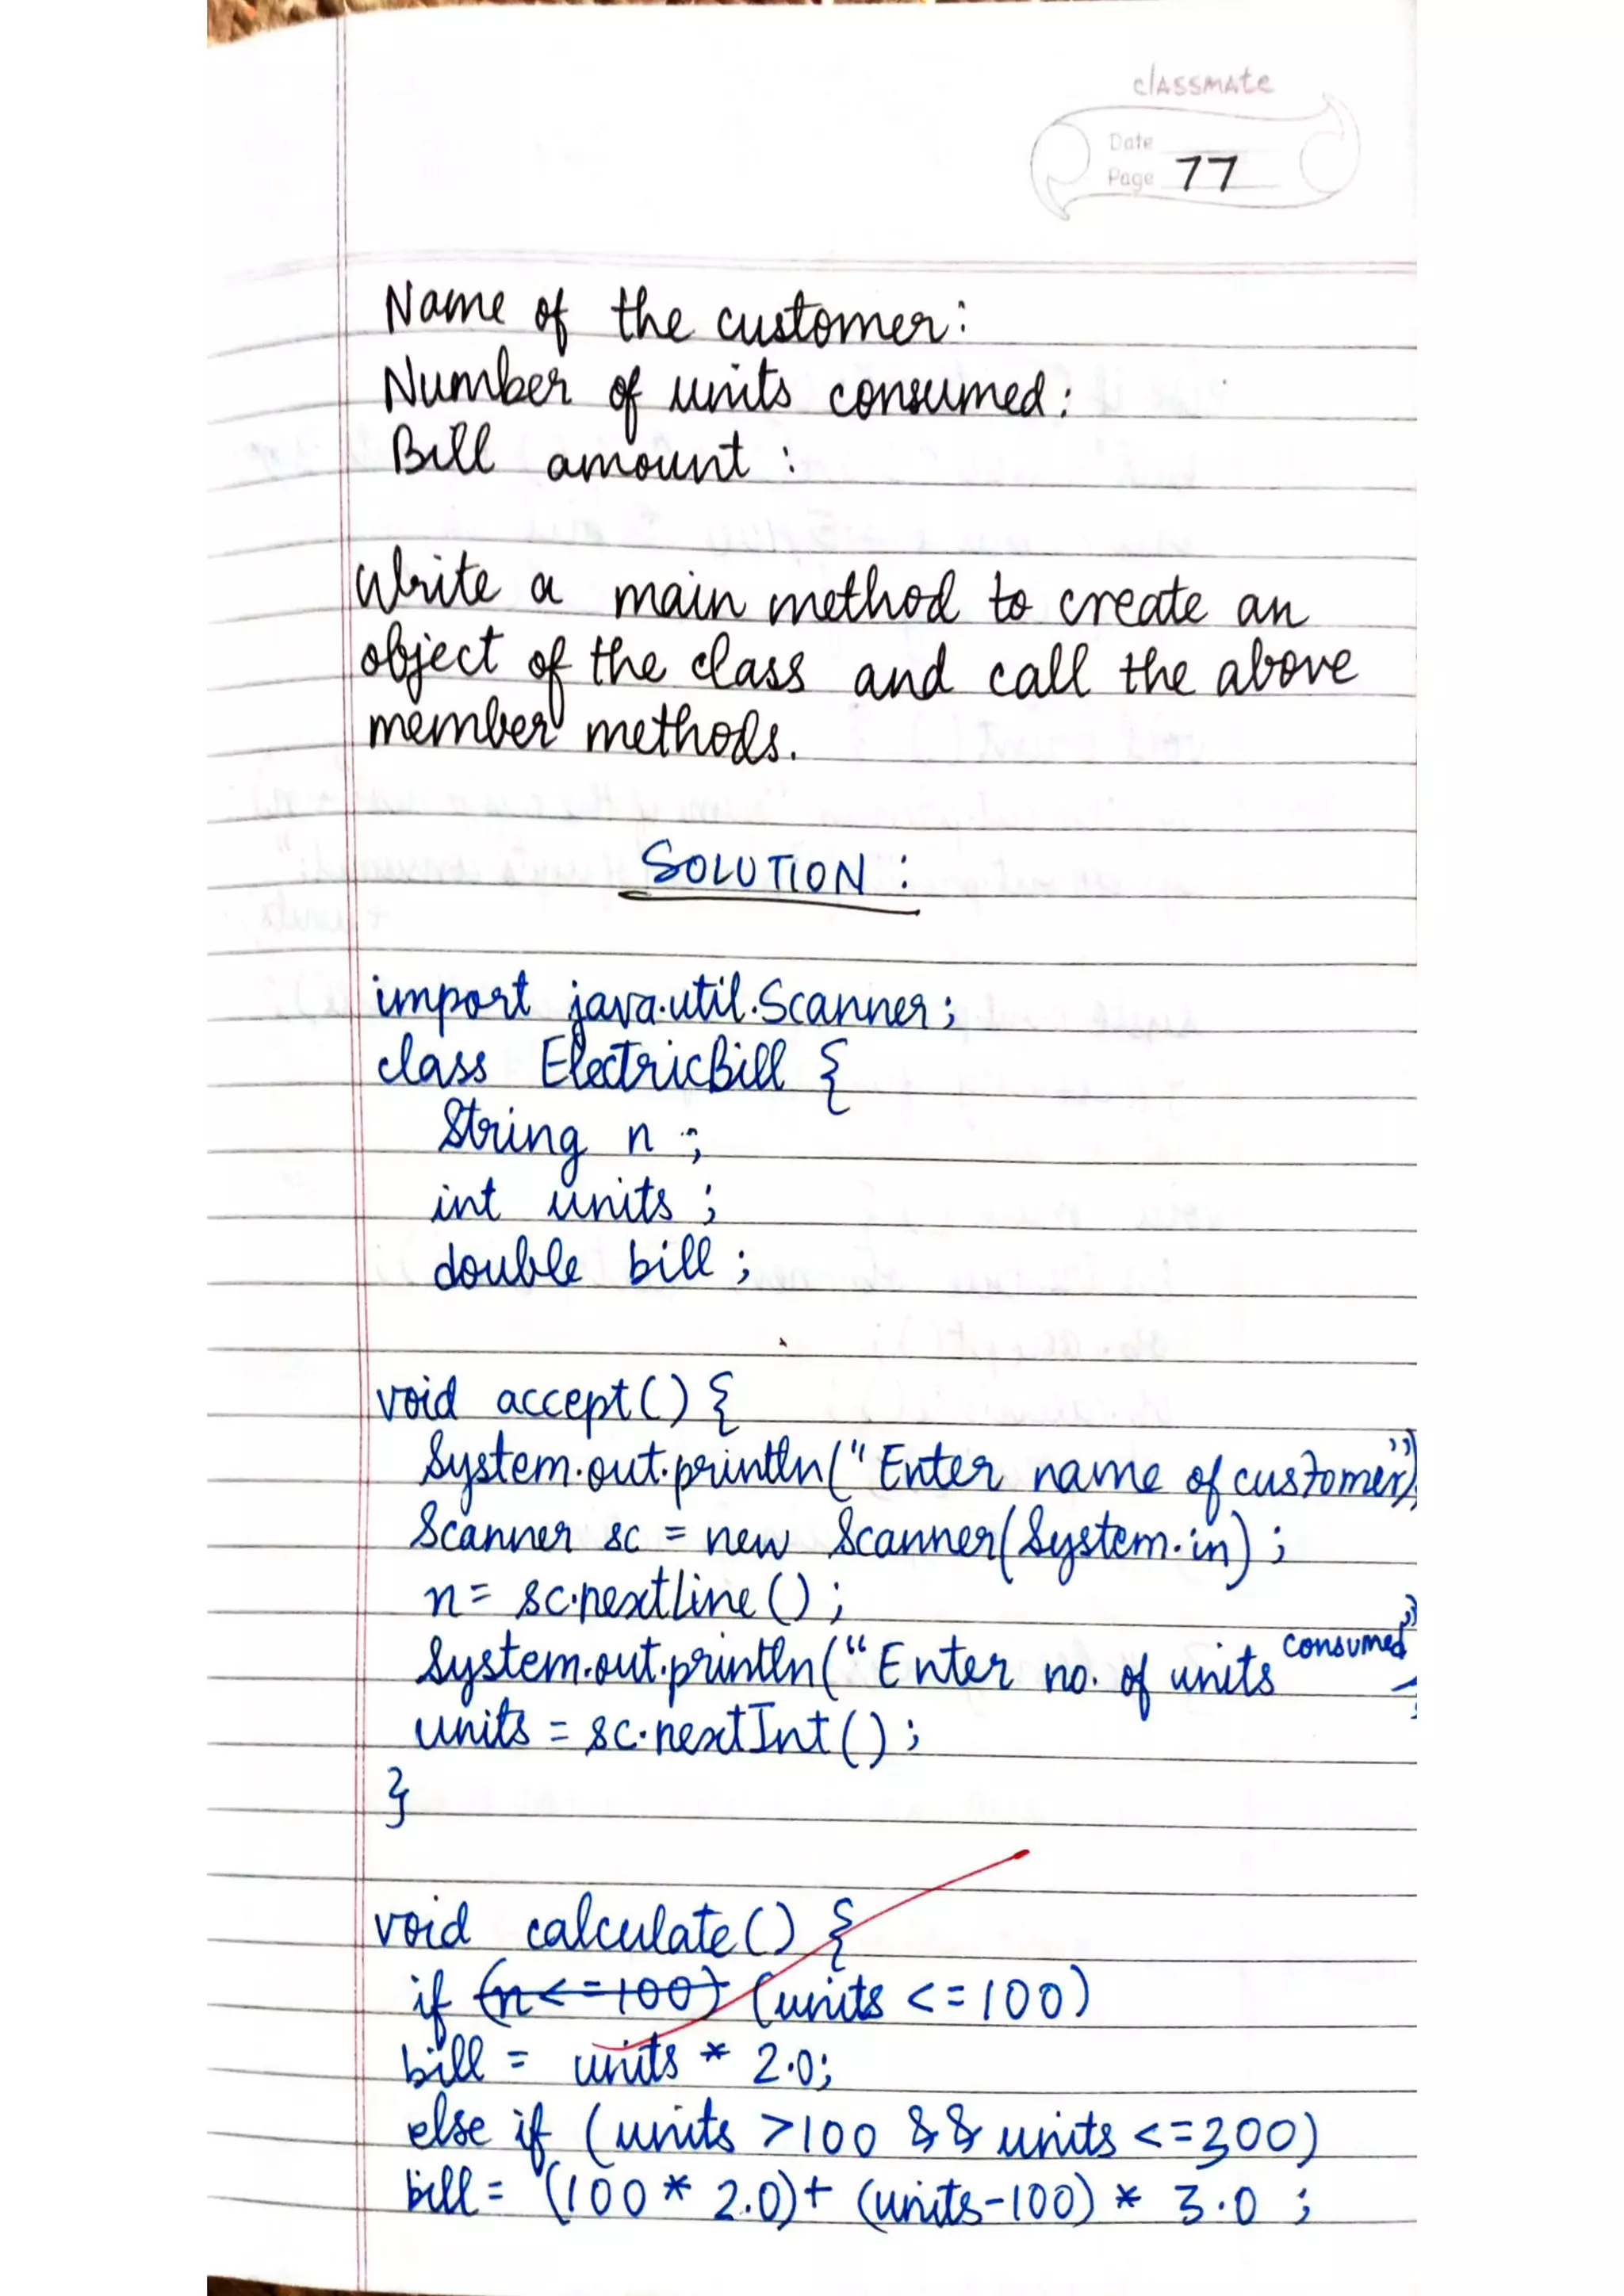 classmate
Date
Page 77
Name of the customer:
Number of units consumed:
Bill amount :
Write a main method to create an
object of the class and call the above
member methods.
SOLUTION :
import java.util.Scanner;
class ElectricBill {
String n ;
int units ;
double bill ;
void accept() {
System.out.println("Enter name of customer");
Scanner sc = new Scanner(System.in) ;
n = sc.nextLine() ;
System.out.println("Enter no. of units consumed");
units = sc.nextInt() ;
}
void calculate() {
if (n<=100) (units <=100)
bill = units * 2.0;
else if (units >100 && units <=300)
bill = (100 * 2.0)+ (units-100) * 3.0 ;